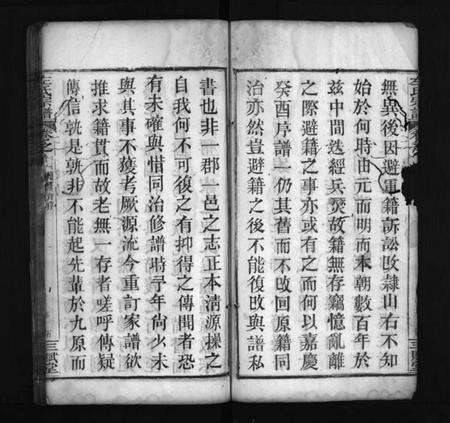 無異後因避軍籍訴訟改隸山右不知
始於何時由元而明而本朝數百年於
茲中間迭經兵燹故籍無存竊憶亂離
之際避籍之事亦或有之而何以嘉慶
癸酉序譜一仍其舊而不改囘原籍同
治亦然豈避籍之後不能復改與譜私
書也非一郡一邑之志正本清源操之
自我何不可復之有抑得之傳聞者恐
有未確與惜同治修譜時予年尚少未
與其事不獲考厥源流今重訂家譜欲
推求籍貫而故老無一存者嗟呼傳疑
傳信孰是孰非不能起先輩於九原而
氏宗譜
三